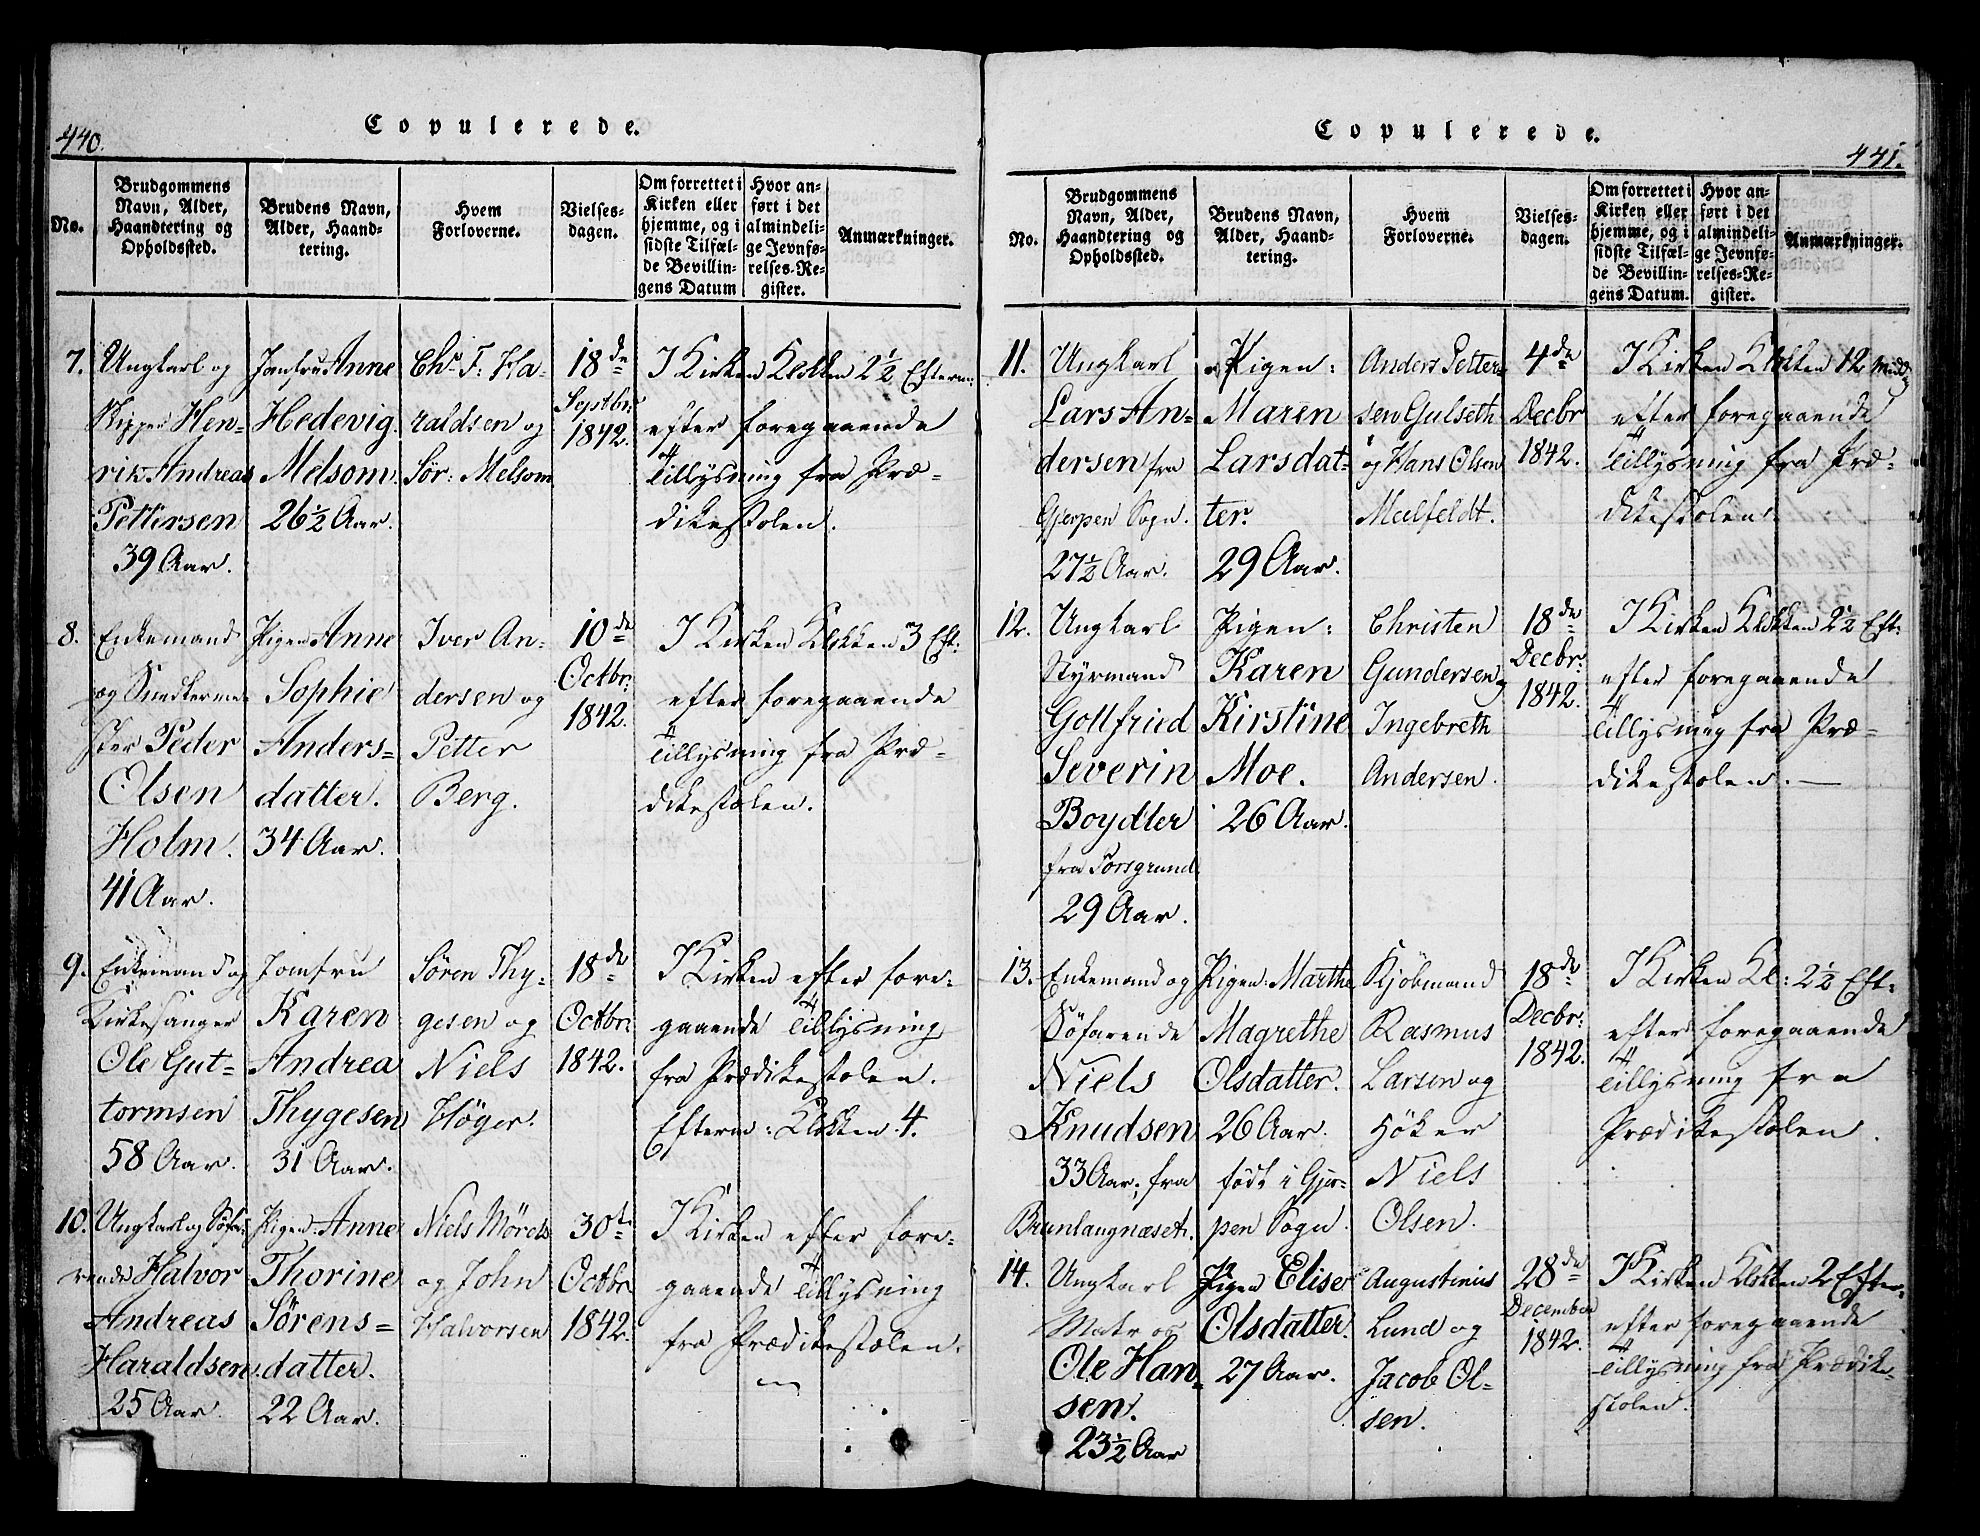 440.
Copulerede.
No.
Brudgommens
Navn, Alder,
Haandtering og
Opholdssted.
Brudens Navn,
Alder, Haand-
tering.
Hvem
Forloverne.
Vielses-
dagen.
Om forrettet i
Kirken eller
hjemme, og i
sidste Tilfæl-
de Bevillin-
gens Datum
Hvor an-
ført i det
almindeli-
ge Jevnfø-
relses-Re-
gister.
Anmærkninger.
7.
Ungkarl og
Skipper Hen-
rik Andreas
Pettersen
39 Aar.
Jomfru Anne
Hedevig
Melsom
26½ Aar.
Chr. F. Ha-
raldsen og
Sør: Melsom
18de
Septbr:
1842.
I Kirken Klokken 2½ Efterm:
efter foregaaende
Tillysning fra Præ-
dikestolen.
8.
Enkemand
og Snedkerme
ster Peder
Olsen
Holm.
41 Aar.
Pigen Anne
Sophie
Anders-
datter.
34 Aar.
Iver An-
dersen og
Petter
Berg.
10de
Octbr:
1842.
I Kirken Klokken 3 Eft:
efter foregaaende
Tillysning fra Præ-
dikestolen.
9.
Enkemand og
Kirkesanger
Ole Gut-
tormsen
58 Aar.
Jomfru
Karen
Andrea
Thygesen
31 Aar.
Søren Thy-
gesen og
Niels
Höger.
18de
Octbr:
1842.
I Kirken efter fore-
gaaende Tillysning
fra Prædikestolen.
Efterm: Klokken 4.
10.
Ungkarl og Søfa-
rende Halvor
Andreas
Haraldsen
25 Aar.
Pigen Anne
Thorine
Sørens-
datter.
22 Aar.
Niels Mörch
og John
Halvorsen
30te
Octbr
1842.
I Kirken efter fore-
gaaende Tillysning
fra Prædikestolen.
441.
Copulerede.
No.
Brudgommens
Navn, Alder,
Haandtering og
Opholdssted.
Brudens Navn,
Alder, Haand-
tering.
Hvem
Forloverne.
Vielses-
dagen.
Om forrettet i
Kirken eller
hjemme, og i
sidste Tilfæl-
de Bevillin-
gens Datum.
Hvor an-
ført i det
almindeli-
ge Jevnfø-
relses-Re-
gister.
Anmærkninger.
11.
Ungkarl
Lars An-
dersen fra
Gjerpen Sogn.
27½ Aar.
Pigen:
Maren
Larsdat-
ter.
29 Aar.
Anders Petter-
sen Gulseth
og Hans Olsen
Melfeldt.
4de
Decbr
1842.
I Kirken Klokken 12 Midd:
efter foregaaende
Tillysning fra Præ-
dikestolen.
12.
Ungkarl
Styrmand
Gottfried
Severin
Boydler
fra Porsgrund
29 Aar.
Pigen:
Karen
Kirstine
Moe.
26 Aar.
Christen
Gundersen og
Ingebreth
Andersen.
18de
Decbr:
1842.
I Kirken Klokken 2½ Eft:
efter foregaaende
Tillysning fra Præ-
dikestolen.
13.
Enkemand og
Söfarende
Niels
Knudsen
33 Aar, fra
Brunlaugnæset.
Pigen: Marthe
Magrethe
Olsdatter.
26 Aar.
födt i Gjer-
pen Sogn.
Kjöbmand
Rasmus
Larsen og
Höker
Niels
Olsen.
18de
Decbr:
1842.
I Kirken Kl: 2½ Eft:
efter foregaaende
Tillysning fra
Prædikestolen.
14.
Ungkarl
Matros
Ole Han-
sen.
23½ Aar
Pigen Elise
Olsdatter.
27 Aar.
Augustinius
Lund og
Jacob Ol-
sen.
28de
December
1842.
I Kirken Klokken 2 Efter-
efter foregaaende
Tillysning fra Prædike-
stolen.